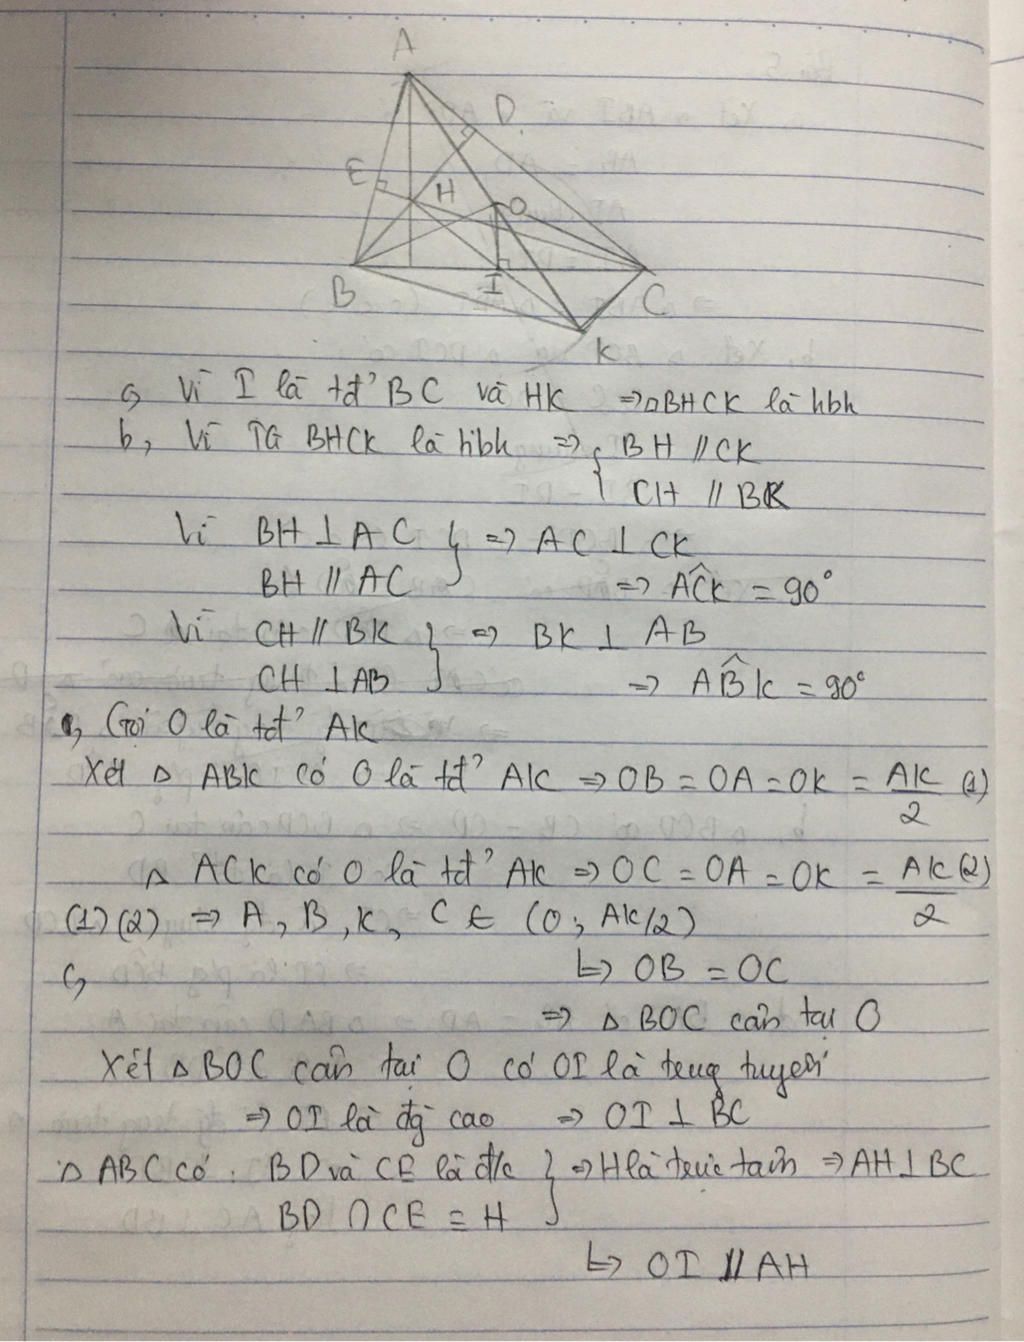 A
D
E
H
O
B
I
C
K
a, Vì I là tđ' BC và HK => ▵BHCK là hbh
b, Vì TG BHCK là hbh => { BH // CK
CH // BK
Vì BH ⊥ AC } => AC ⊥ CK
BH // AC => AĈK = 90°
Vì CH // BK } => BK ⊥ AB
CH ⊥ AB => AB̂K = 90°
c, Gọi O là tđ' AK
Xét ▵ ABK có O là tđ' AK => OB = OA = OK = AK/2 (1)
▵ ACK có O là tđ' AK => OC = OA = OK = AK/2 (2)
(1)(2) => A, B, K, C ∈ (O; AK/2)
c, ↳ OB = OC
=> ▵ BOC cân tại O
Xét ▵ BOC cân tại O có OI là trung tuyến
=> OI là đg cao => OI ⊥ BC
▵ ABC có: BD và CE là đ/c } => H là trực tâm => AH ⊥ BC
BD ∩ CE = H
↳ OI // AH